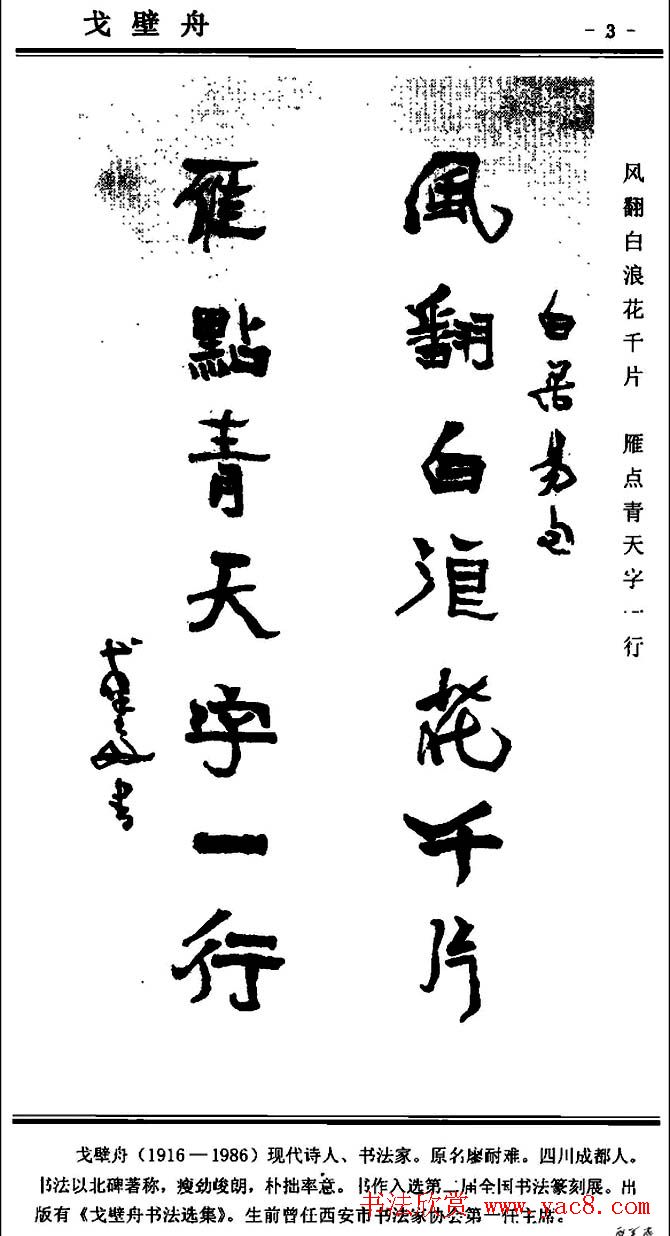 戈壁舟
- 3 -
风翻白浪花千片 雁点青天字一行
白居易句
風翻白浪花千片
雁點青天字一行
戈壁舟書
戈壁舟（1916—1986）现代诗人、书法家。原名廖耐难。四川成都人。
书法以北碑著称，瘦劲峻朗，朴拙率意。书作入选第二届全国书法篆刻展。出
版有《戈壁舟书法选集》。生前曾任西安市书法家协会第一任主席。
书法欣赏
www.yac8.com